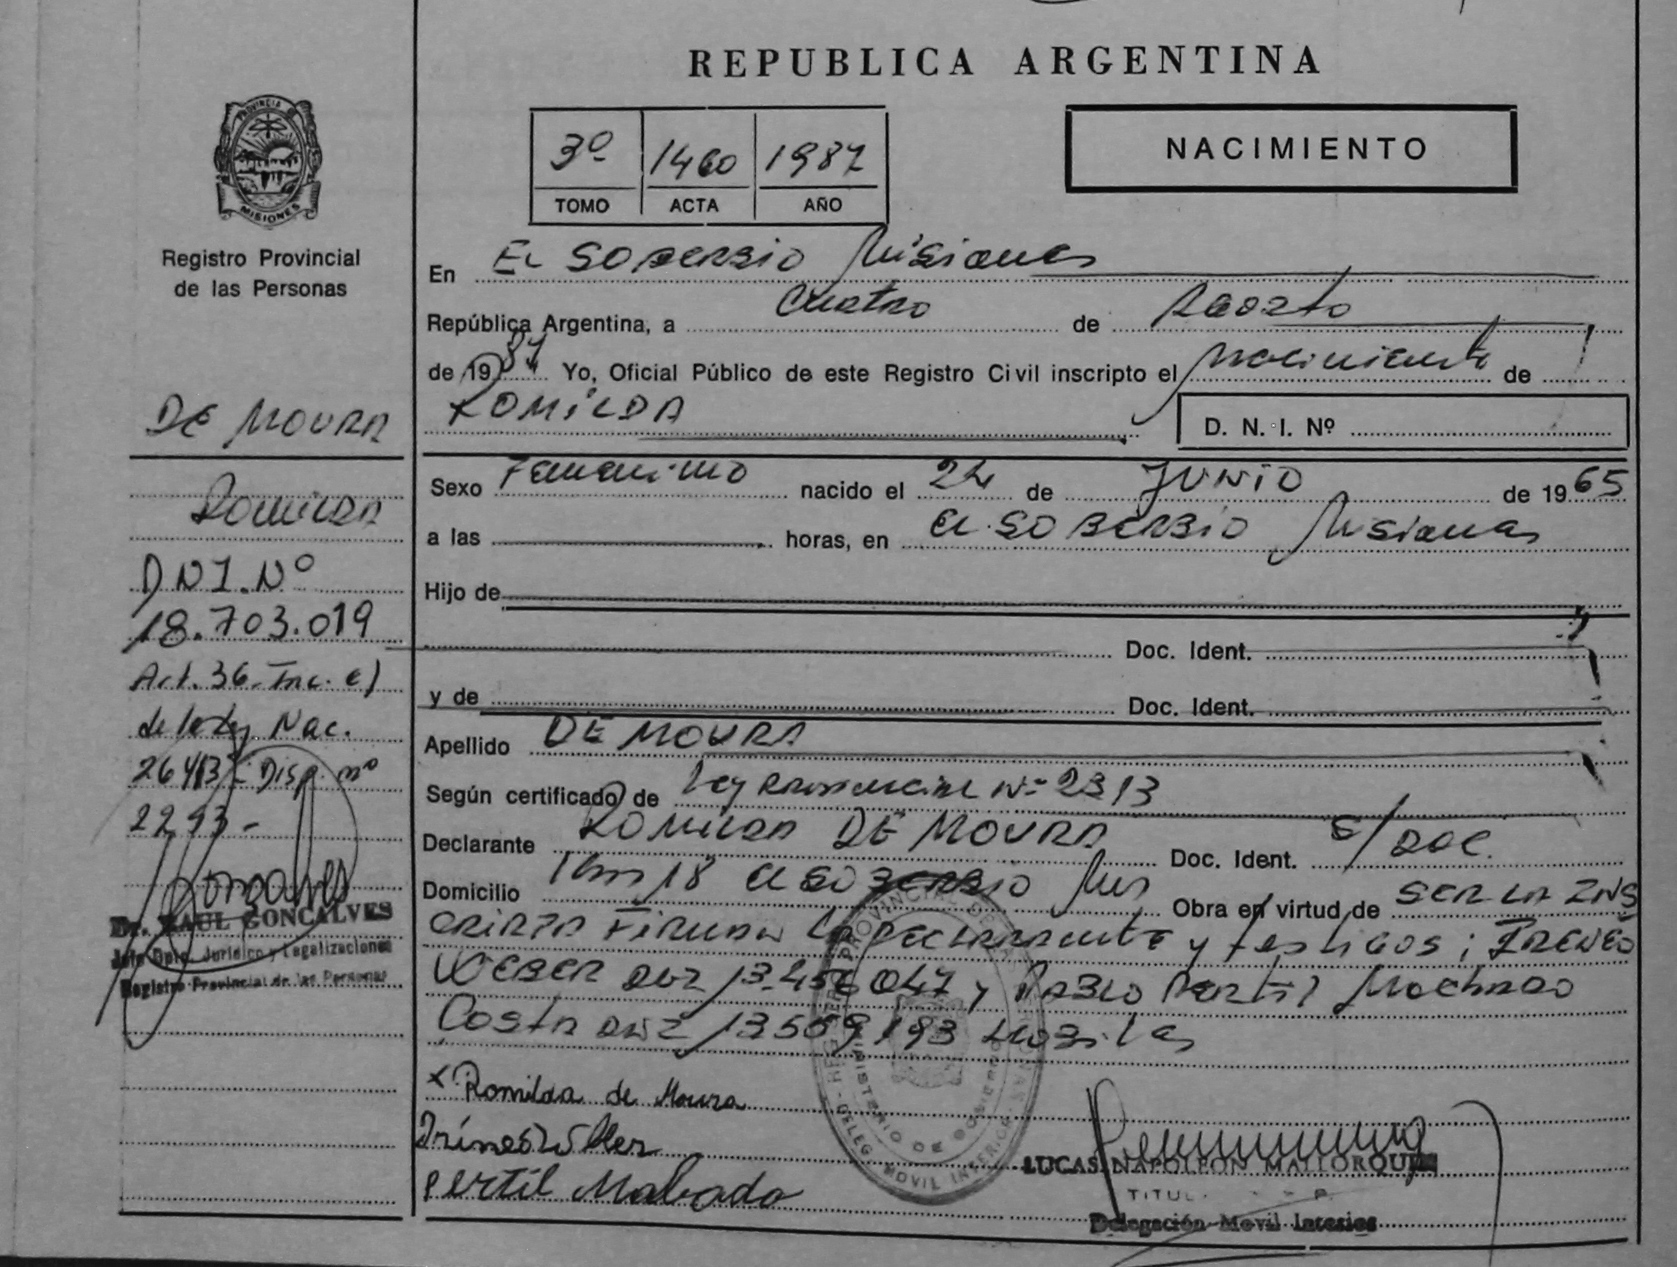 REPUBLICA ARGENTINA
PROVINCIA
MISIONES
Registro Provincial
de las Personas
3º 1460 1987
TOMO ACTA AÑO
NACIMIENTO
En EL SOBERBIO Misiones
República Argentina, a Cuatro de Agosto
de 1987 Yo, Oficial Público de este Registro Civil inscripto el Nacimiento de
ROMILDA
D. N. I. Nº
Sexo Femenino nacido el 24 de JUNIO de 1965
a las horas, en El SOBERBIO Misiones
Hijo de
Doc. Ident.
y de Doc. Ident.
Apellido DE MOURA
Según certificado de Ley Provincial Nº 2313
Declarante ROMILDA DE MOURA Doc. Ident. S/DOC.
Domicilio Km 18 El SOBERBIO Mns Obra en virtud de SER LA INS
CRIPTA Firman la Declarante y testigos; IRENEO
WEBER DNI 13.456047 y PABLO Pertil Machado
Costa DNI 13509193
x Romilda de Moura
Pertil Mabado
LUCAS NAPOLEON MALLORQUIN
TITUL
Delegación Movil Interior
DE MOURA
Romilda
DNI.Nº
18.703.019
Art. 36-Inc. e)
de la Ley Nac.
26413- Disp. nº
2293-
Dr. RAUL GONCALVES
Jefe Dpto. Jurídico y Legalizaciones
Registro Provincial de las Personas